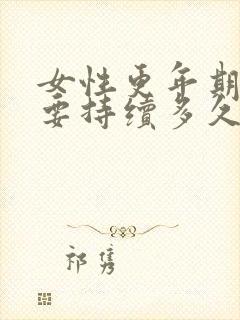 女性更年期
要持续多久
祁隽